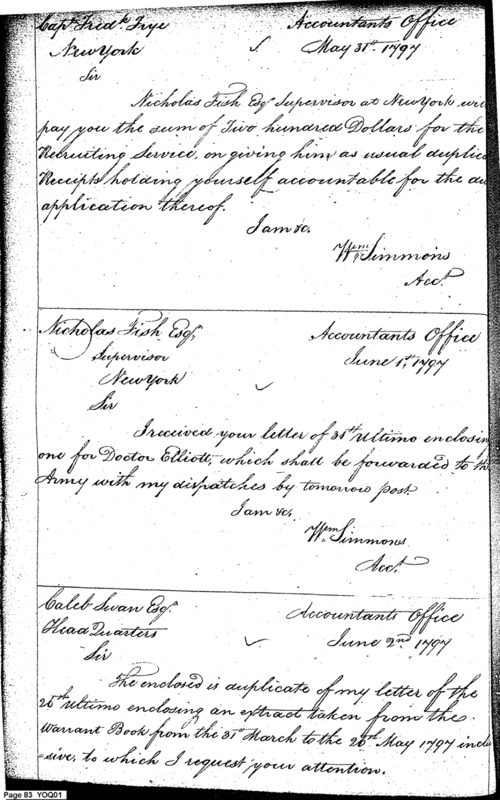 Capt. Fredk. Frye Accountants Office
New York May 31st. 1797
Sir
Nicholas Fish Esqr Supervisor at New York will
pay you the sum of Two hundred Dollars for the
Recruiting Service, on giving him as usual duplica
Receipts holding yourself accountable for the due
application thereof.
I am &c.
Wm Simmons
Acct.
Nicholas Fish Esqr, Accountants Office
Supervisor June 1st. 1797
New York
Sir
I received your letter of 31st Ultimo enclosin
one for Doctor Elliott, which shall be forwarded to the
Army with my dispatches by tomorrow post.
I am &c.
Wm Simmons
Acct.
Caleb Swan Esqr Accountants Office
Head Quarters June 2nd 1797
Sir
The enclosed is duplicate of my letter of the
26th Ultimo enclosing an extract taken from the
Warrant Book from the 31st March to the 26th May 1797 inclu
-sive, to which I request your attention.
Page 83 YOQ01